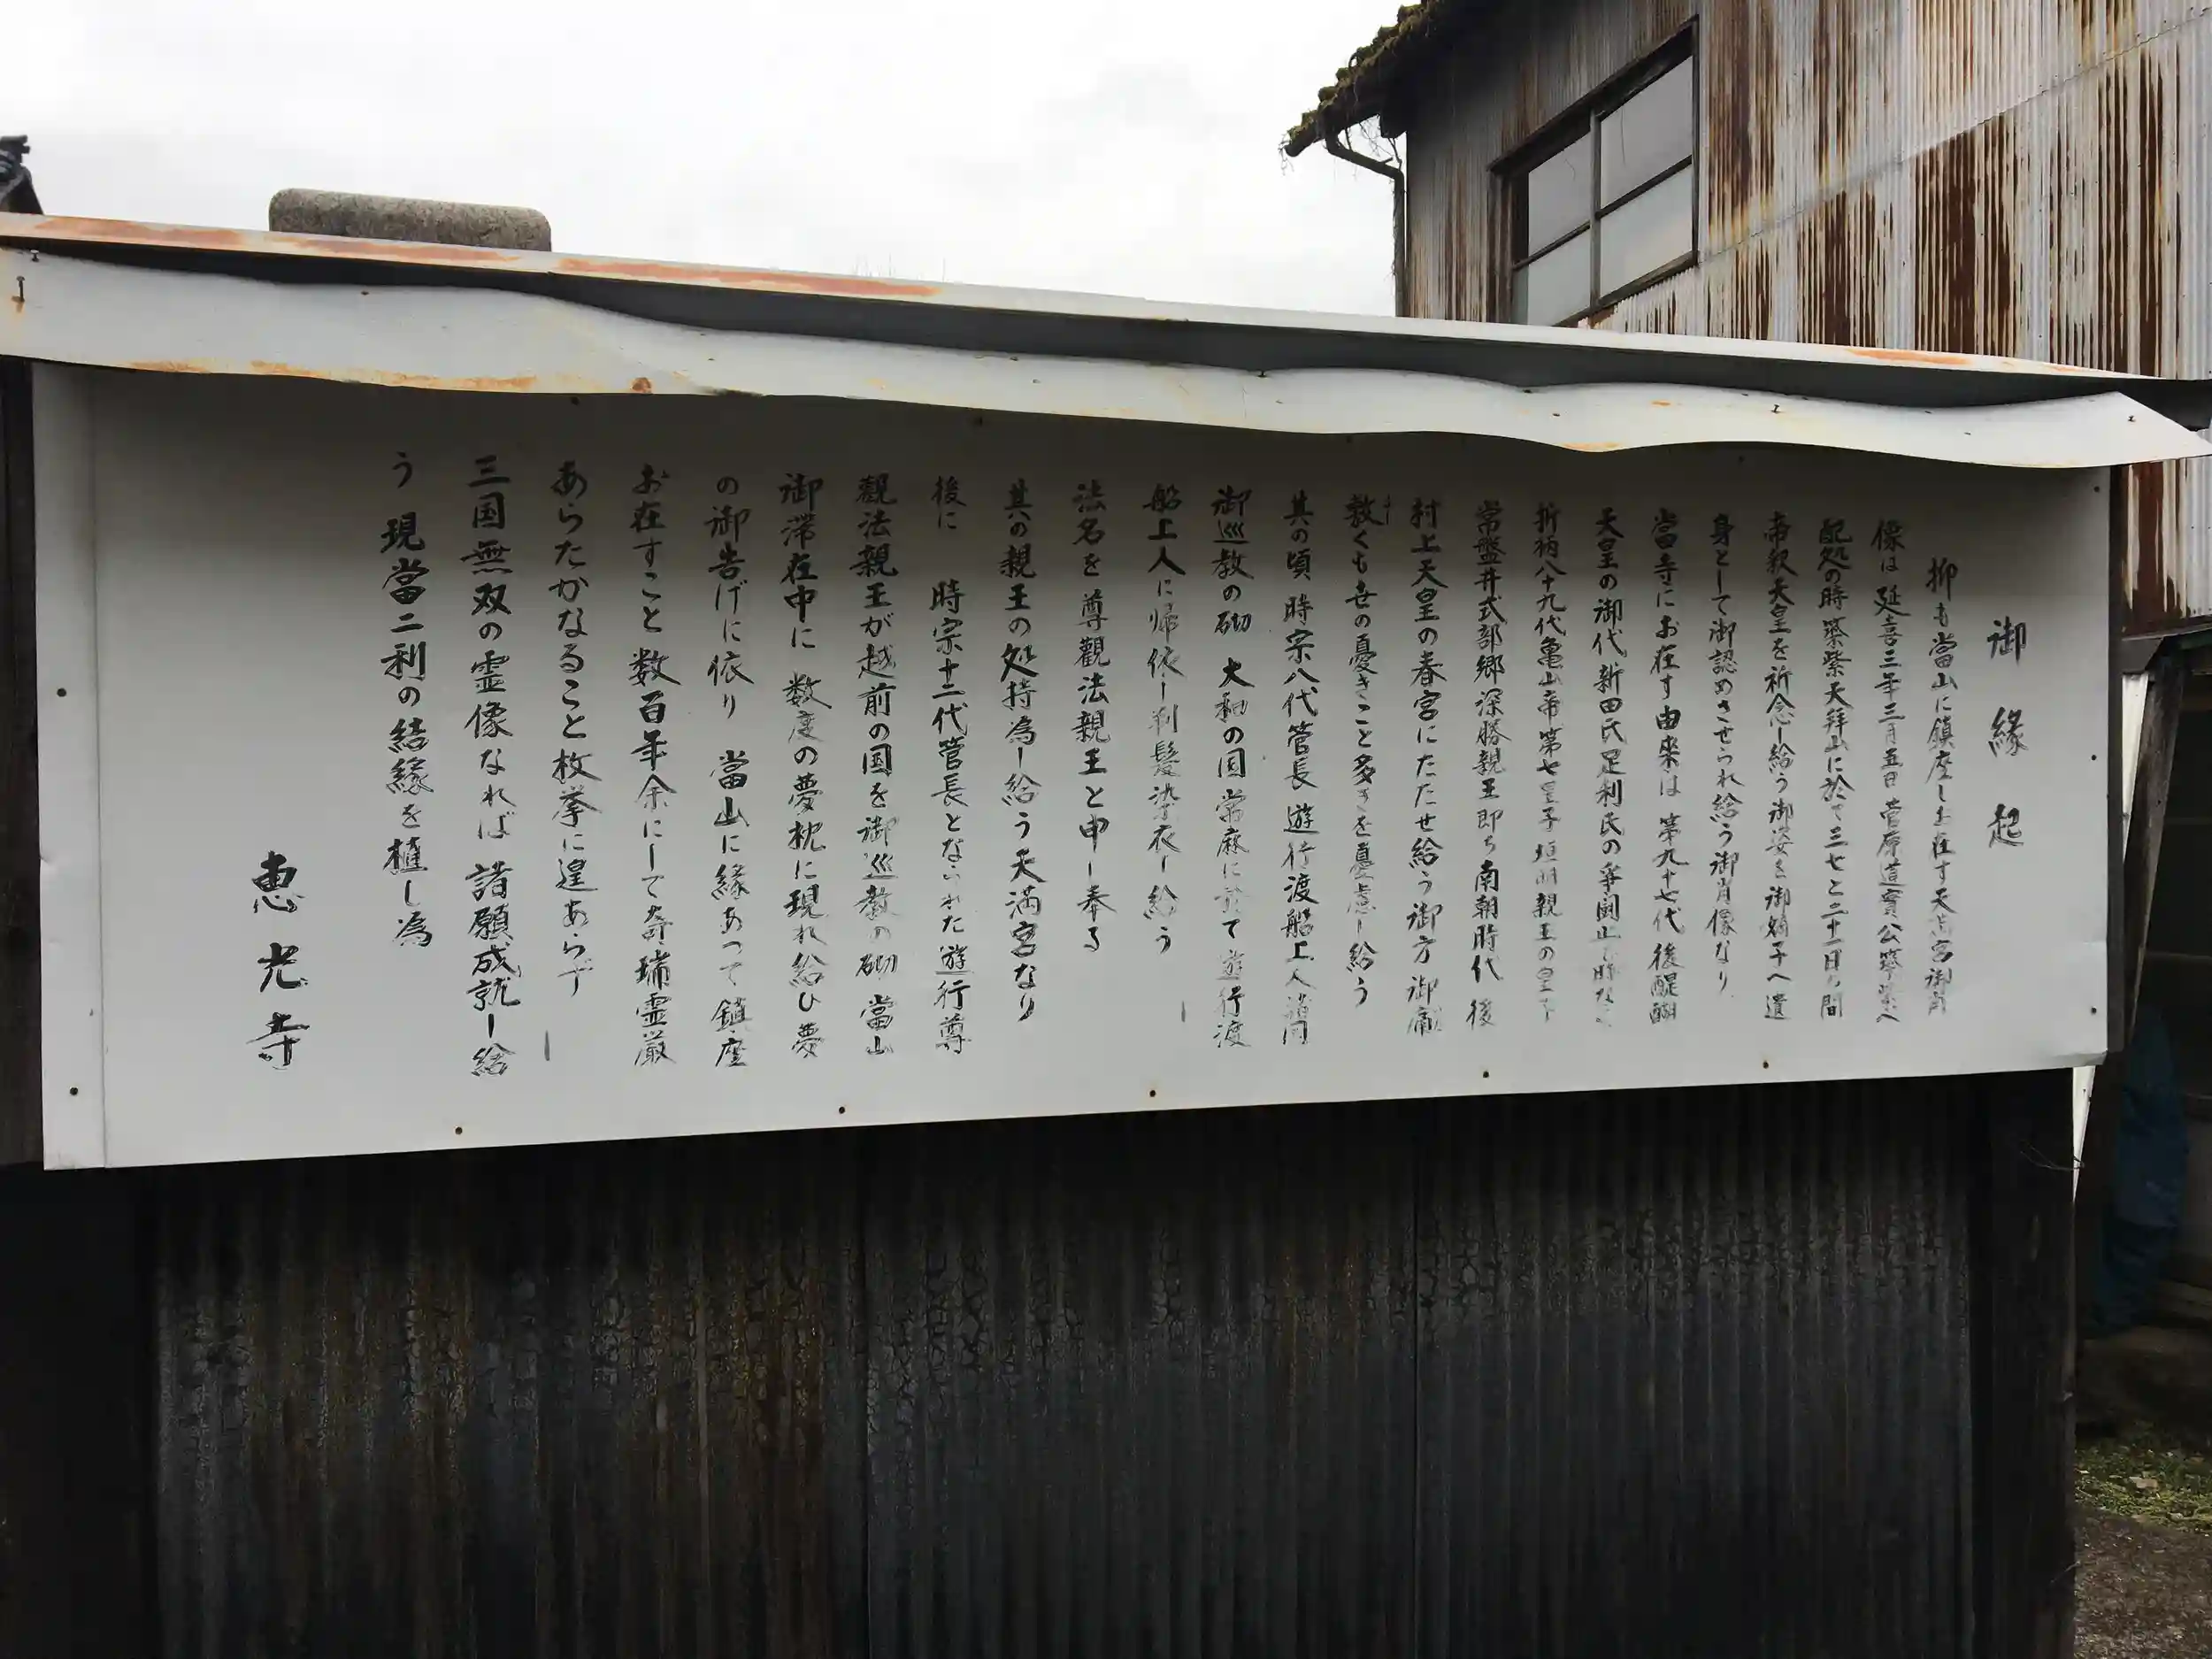 御縁起
抑も當山に鎮座しま在す天満宮御肖
像は延喜三年三月五日菅原道實公筑紫へ
配処の時筑紫天拜山に於て三七之二十一日の間
帝釈天皇を祈念し給う御姿を御嫡子へ遺
身として御認めさせられ給う御肖像なり
當寺にお在す由来は第九十七代後醍醐
天皇の御代新田氏足利氏の爭闘止む時な
折柄八十九代亀山帝第七皇子垣明親王の皇子
常盤井式部郷深勝親王即ち南朝時代後
村上天皇の春宮にたたせ給う御方御厭
敎くも世の憂きこと多きを憂慮し給う
其の頃時宗八代管長遊行渡船上人諸国
御巡教の砌大和の国當麻に於て遊行渡
船上人に帰依し剃髪染衣し給う
法名を尊觀法親王と申し奉る
其の親王の処持為し給う天満宮なり
後に時宗十二代管長となられた遊行尊
觀法親王が越前の国を御巡教の砌當山
御滞在中に数度の夢枕に現れ給ひ夢
の御告げに依り當山に緣あって鎮座
お在すこと数百年余にして奇瑞霊厳
あらたかなること枚挙に遑あらず
三国無双の霊像なれば諸願成就し給
う現當二利の結緣を植し為
恵光寺